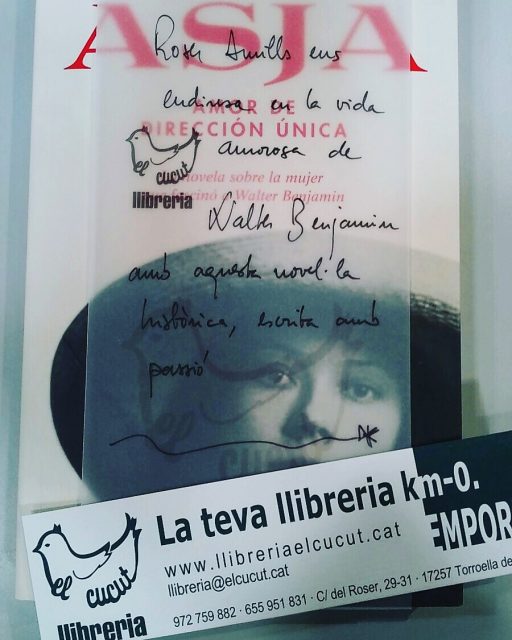 ASJA
Roser Amills ens
endinsa en la vida
AMOR DE
DIRECCIÓN ÚNICA
amorosa de
el cucut
llibreria
novela sobre la mujer
que fascinó a Walter Benjamin
Walter Benjamin
amb aquesta novel·la
històrica, escrita amb
passió
el cucut
La teva llibreria km-0.
www.llibreriaelcucut.cat
llibreria@elcucut.cat
EMPOR
972 759 882 · 655 951 831 · C/ del Roser, 29-31 · 17257 Torroella de
el cucut
llibreria